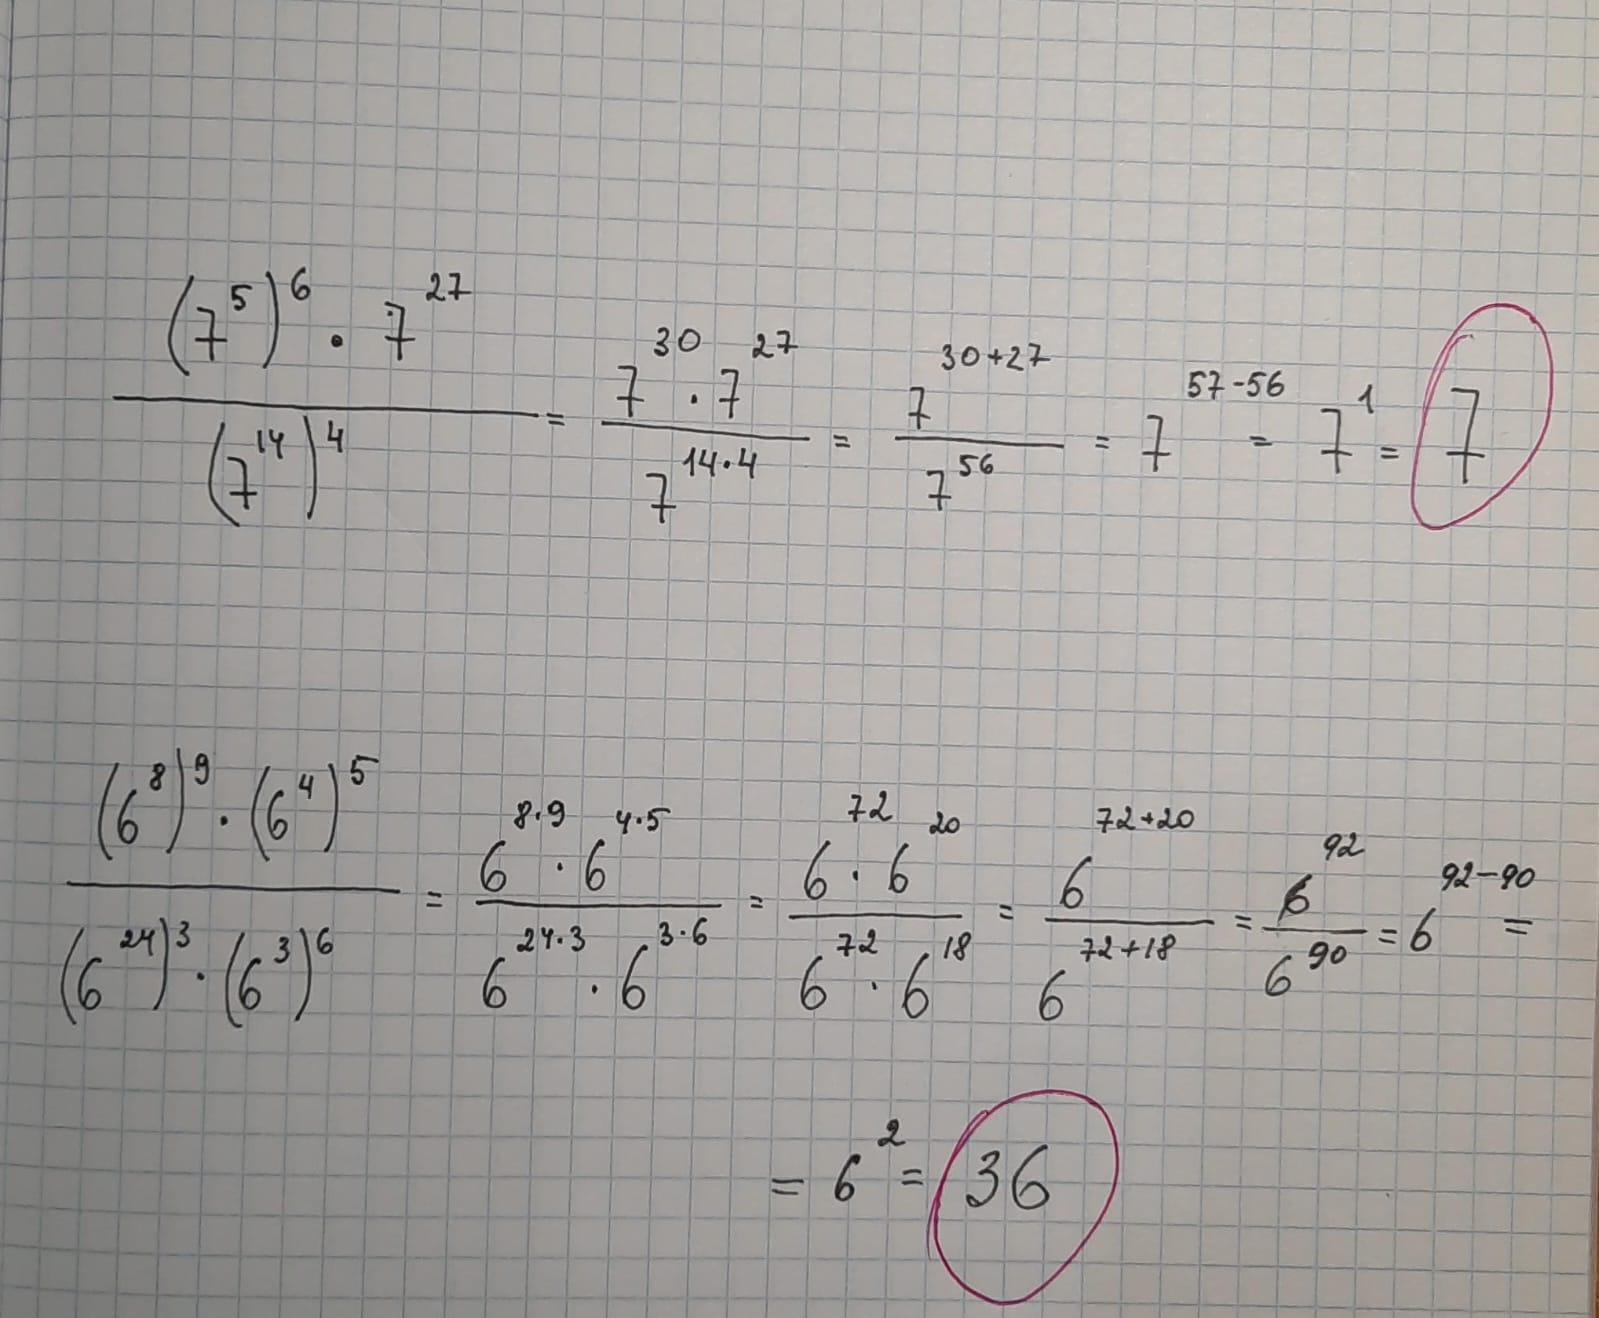 ((7^5)^6 · 7^27) / (7^14)^4 = (7^30 · 7^27) / 7^(14·4) = 7^(30+27) / 7^56 = 7^(57-56) = 7^1 = 7
((6^8)^9 · (6^4)^5) / ((6^24)^3 · (6^3)^6) = (6^(8·9) · 6^(4·5)) / (6^(24·3) · 6^(3·6)) = (6^72 · 6^20) / (6^72 · 6^18) = 6^(72+20) / 6^(72+18) = 6^92 / 6^90 = 6^(92-90) =
= 6^2 = 36